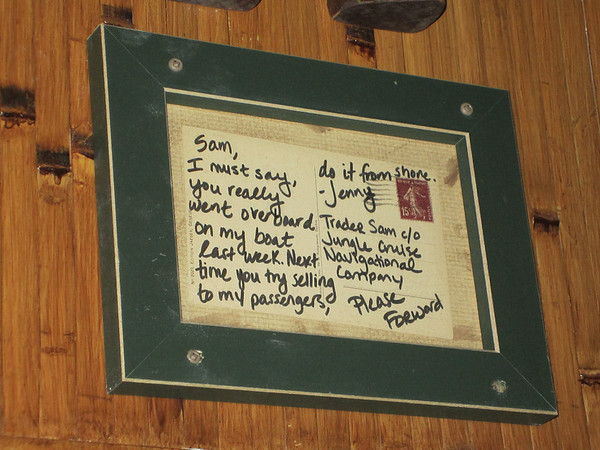 Sam,
I must say,
you really
went overboard
on my boat
last week. Next
time you try selling
to my passengers,
do it from shore.
-Jenny
Trader Sam c/o
Jungle Cruise
Navigational
Company
Please
Forward
15